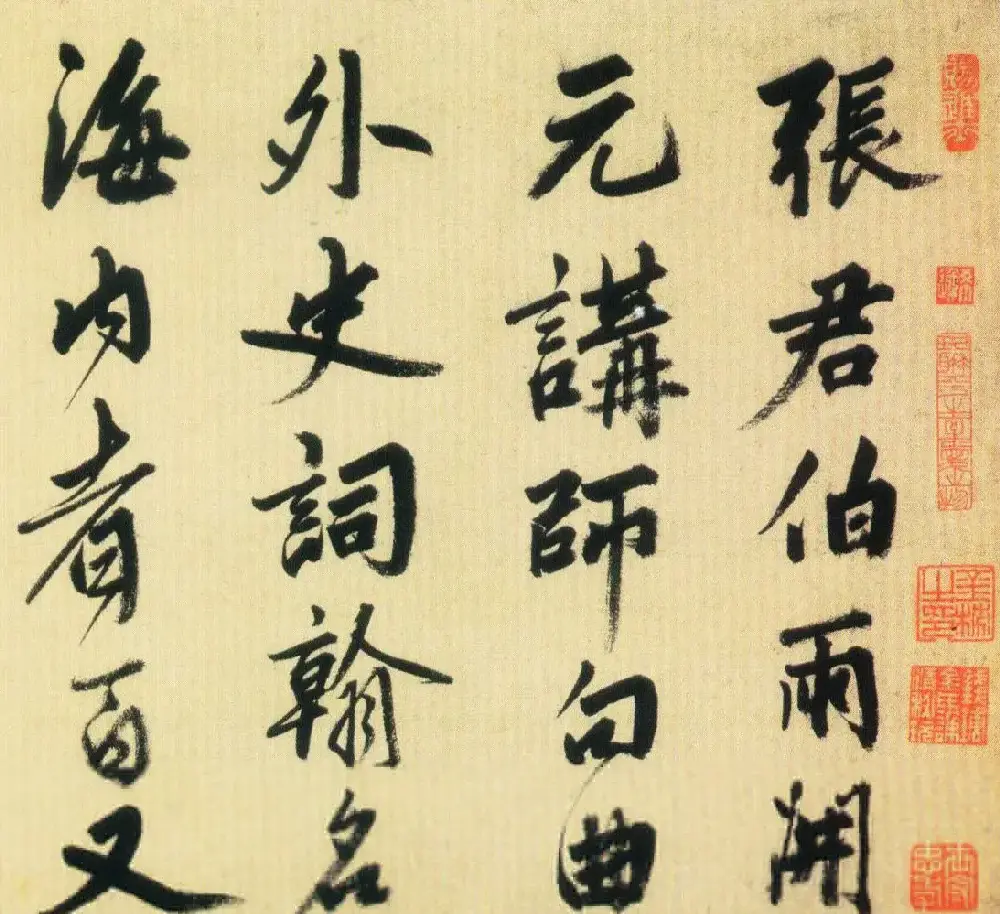 張君伯雨開
元講師句曲
外史詞翰名
海内者百又